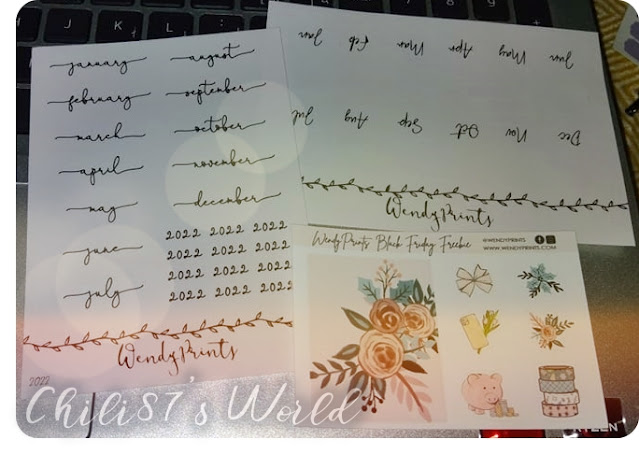 january
february
march
april
may
june
july
august
september
october
november
december
2022 2022 2022
2022 2022 2022
2022 2022 2022
2022 2022 2022
WendyPrints
2022
Jan Feb Mar Apr May Jun
Jul Aug Sep Oct Nov Dec
WendyPrints
WendyPrints Black Friday Freebie
@WENDYPRINTS
WWW.WENDYPRINTS.COM
Chili87's World